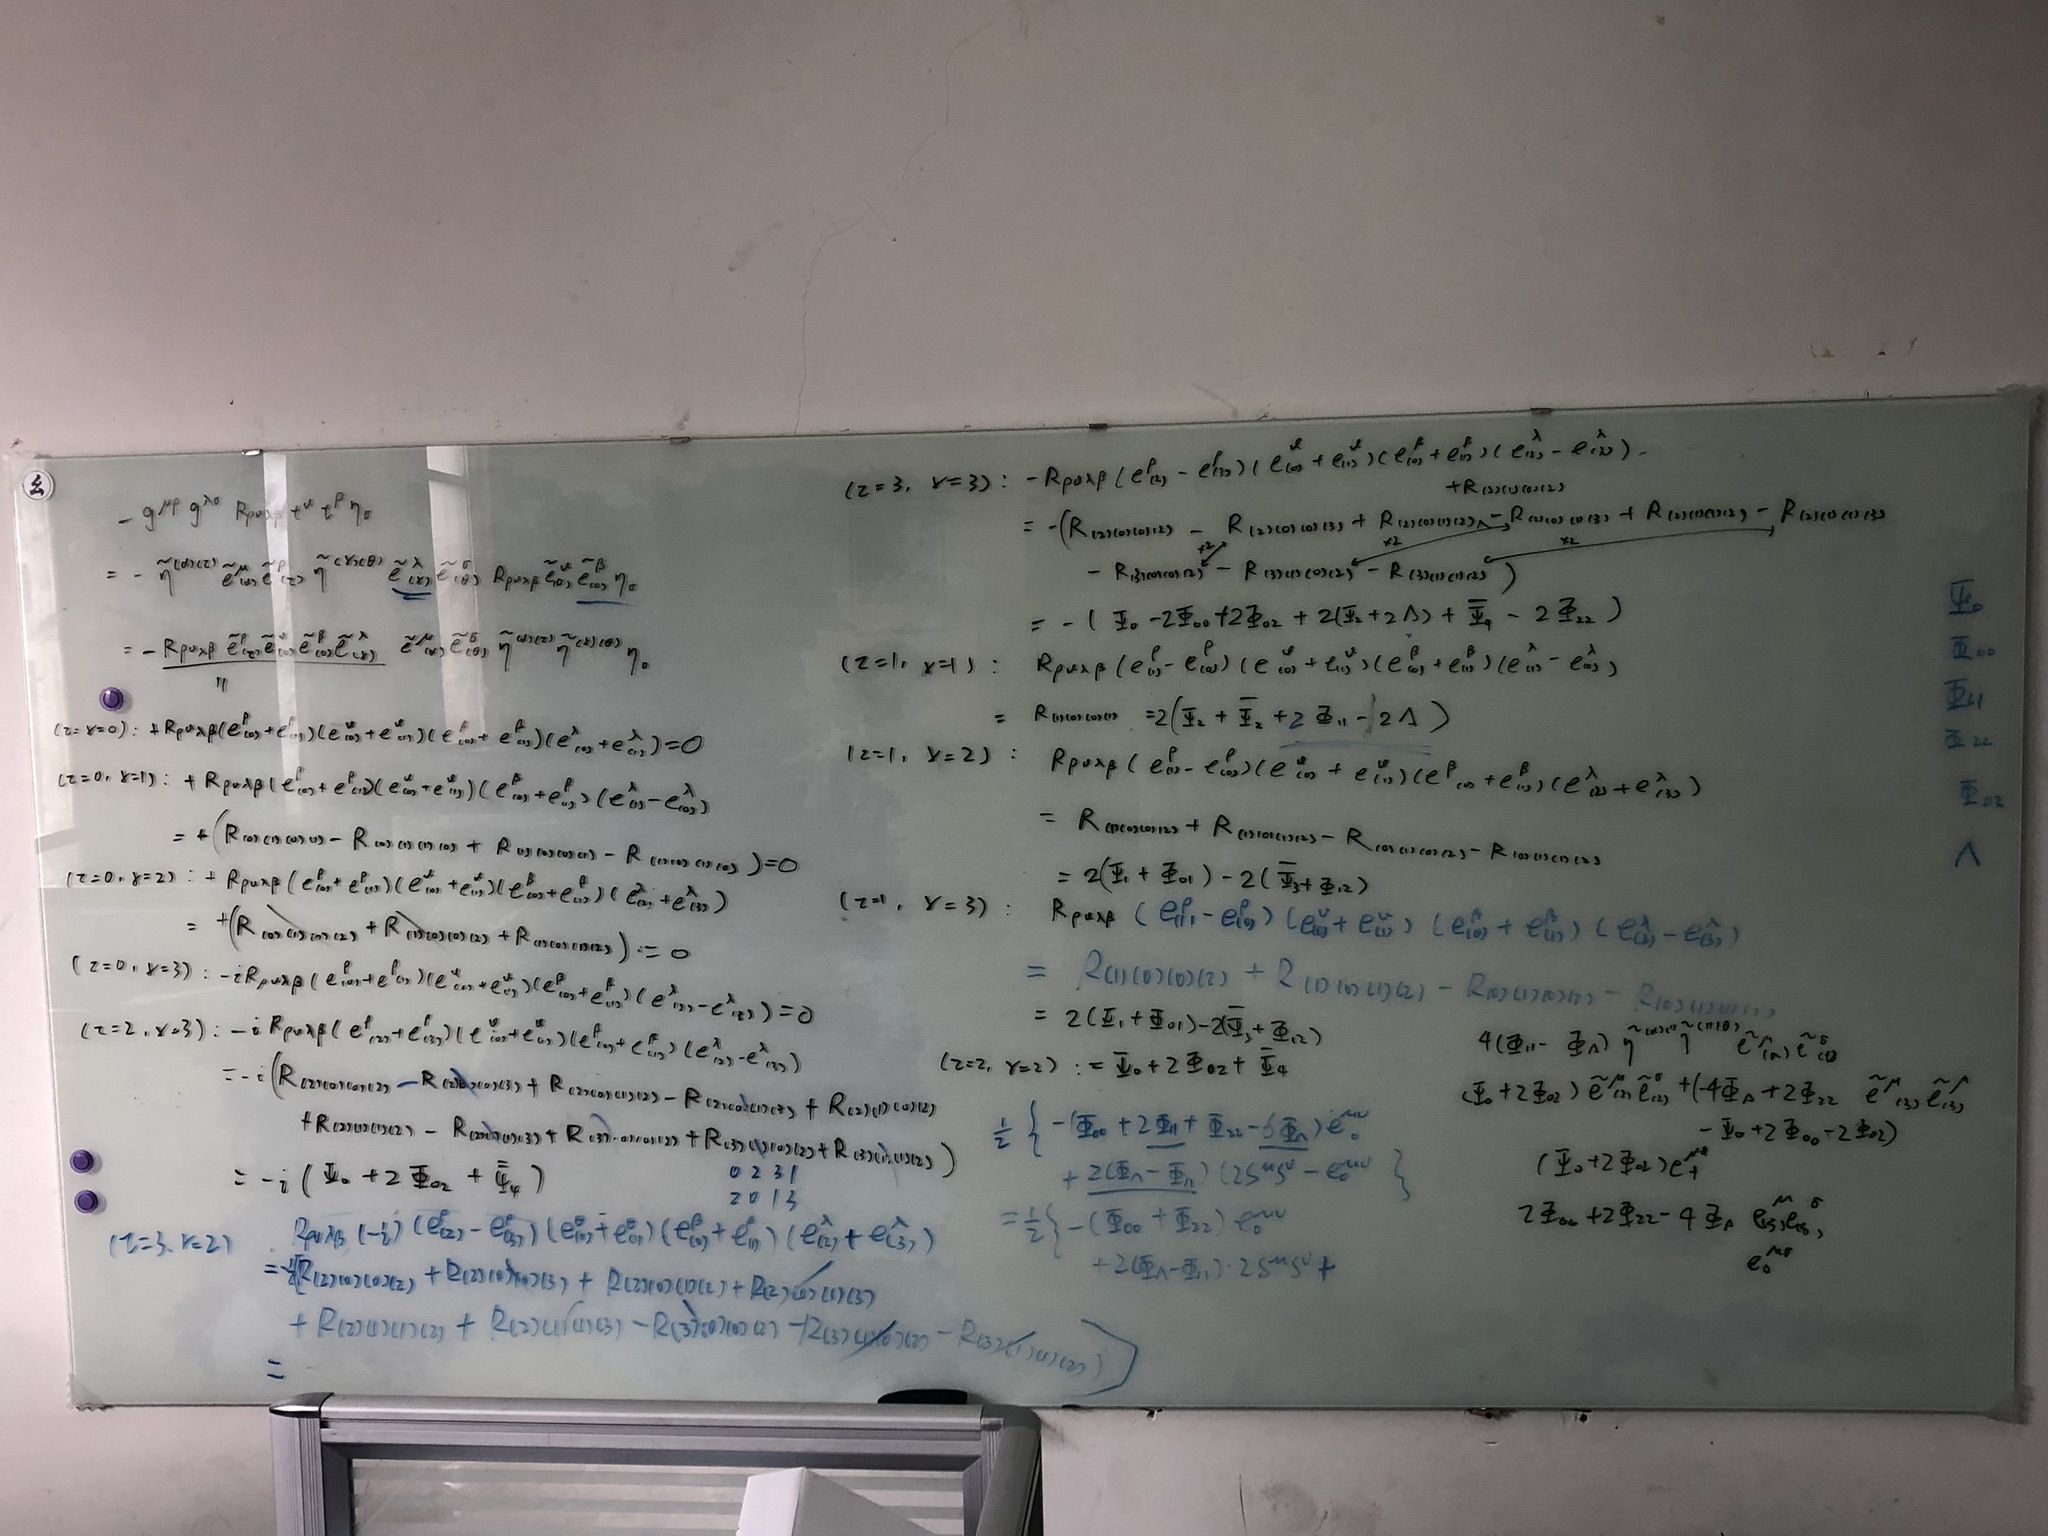 - g^{μρ} g^{λσ} R_{ρνλβ} t^ν t^β η_σ
= - η̃^{(α)(τ)} ẽ^μ_{(α)} ẽ^ρ_{(τ)} η̃^{(γ)(θ)} ẽ^λ_{(γ)} ẽ^σ_{(θ)} R_{ρνλβ} ẽ^ν_{(0)} ẽ^β_{(0)} η_σ
= - R_{ρνλβ} ẽ^ρ_{(τ)} ẽ^ν_{(0)} ẽ^β_{(0)} ẽ^λ_{(γ)} ẽ^μ_{(α)} ẽ^σ_{(θ)} η̃^{(α)(τ)} η̃^{(γ)(θ)} η_σ
(τ=γ=0) : + R_{ρνλβ}(e^ρ_{(0)} + e^ρ_{(1)})(e^ν_{(0)} + e^ν_{(1)})(e^β_{(0)} + e^β_{(1)})(e^λ_{(0)} + e^λ_{(1)}) = 0
(τ=0, γ=1) : + R_{ρνλβ}(e^ρ_{(0)} + e^ρ_{(1)})(e^ν_{(0)} + e^ν_{(1)})(e^β_{(0)} + e^β_{(1)})(e^λ_{(1)} - e^λ_{(0)})
(τ=0, γ=2) : + R_{ρνλβ}(e^ρ_{(0)} + e^ρ_{(1)})(e^ν_{(0)} + e^ν_{(1)})(e^β_{(0)} + e^β_{(1)})(e^λ_{(2)} + e^λ_{(3)})
(τ=0, γ=3) : -i R_{ρνλβ}(e^ρ_{(0)} + e^ρ_{(1)})(e^ν_{(0)} + e^ν_{(1)})(e^β_{(0)} + e^β_{(1)})(e^λ_{(2)} - e^λ_{(3)}) = 0
(τ=2, γ=3) : -i R_{ρνλβ}(e^ρ_{(2)} + e^ρ_{(3)})(e^ν_{(0)} + e^ν_{(1)})(e^β_{(0)} + e^β_{(1)})(e^λ_{(2)} - e^λ_{(3)})
= -i (R_{(2)(0)(0)(2)} - R_{(2)(0)(0)(3)} + R_{(2)(0)(1)(2)} - R_{(2)(0)(1)(3)} + R_{(2)(1)(0)(2)}
= -i ( Ψ_0 + 2Φ_{02} + Ψ̄_4 )
0 2 3 1
2 0 1 3
(τ=3, γ=2) R_{ρνλβ} (-i) (e^ρ_{(2)} - e^ρ_{(3)}) (e^ν_{(0)} + e^ν_{(1)}) (e^β_{(0)} + e^β_{(1)}) (e^λ_{(2)} + e^λ_{(3)})
R_{(2)(0)(0)(2)} + R_{(2)(0)(0)(3)} + R_{(2)(0)(1)(2)} + R_{(2)(0)(1)(3)}
+ R_{(2)(1)(1)(2)} + R_{(2)(1)(1)(3)} - R_{(3)(0)(0)(2)} - R_{(3)(1)(0)(2)} - R_{(3)(1)(1)(2)} )
=
(τ=3, γ=3) : - R_{ρνλβ} (e^ρ_{(2)} - e^ρ_{(3)}) (e^ν_{(0)} + e^ν_{(1)}) (e^β_{(0)} + e^β_{(1)}) (e^λ_{(2)} - e^λ_{(3)}) .
+ R_{(2)(1)(0)(2)}
= -(R_{(2)(0)(0)(2)} - R_{(2)(0)(0)(3)} + R_{(2)(0)(1)(2)} - R_{(2)(0)(1)(3)} + R_{(2)(1)(1)(2)} - R_{(2)(1)(1)(3)}
×2 ×2 ×2
- R_{(3)(0)(0)(2)} - R_{(3)(1)(0)(2)} - R_{(3)(1)(1)(2)} )
= - ( Ψ_0 - 2Φ_{00} + 2Φ_{02} + 2(Ψ_2 + 2Λ) + Ψ̄_4 - 2Φ_{22} )
(τ=1, γ=1) : R_{ρνλβ} (e^ρ_{(1)} - e^ρ_{(0)}) (e^ν_{(0)} + e^ν_{(1)}) (e^β_{(0)} + e^β_{(1)}) (e^λ_{(1)} - e^λ_{(0)})
= R_{(1)(0)(0)(1)} = 2(Ψ_2 + Ψ̄_2 + 2Φ_{11} - 2Λ)
(τ=1, γ=2) : R_{ρνλβ} (e^ρ_{(1)} - e^ρ_{(0)}) (e^ν_{(0)} + e^ν_{(1)}) (e^β_{(0)} + e^β_{(1)}) (e^λ_{(2)} + e^λ_{(3)})
= R_{(1)(0)(0)(2)} + R_{(1)(0)(1)(2)} - R_{(0)(1)(0)(2)} - R_{(0)(1)(1)(2)}
= 2(Ψ_1 + Φ_{01}) - 2(Ψ̄_3 + Φ_{12})
(τ=1, γ=3) : R_{ρνλβ} (e^ρ_{(1)} - e^ρ_{(0)}) (e^ν_{(0)} + e^ν_{(1)}) (e^β_{(0)} + e^β_{(1)}) (e^λ_{(2)} - e^λ_{(3)})
= R_{(1)(0)(0)(2)} + R_{(1)(0)(1)(2)} - R_{(0)(1)(0)(2)} - R_{(0)(1)(1)(2)}
= 2(Ψ_1 + Φ_{01}) - 2(Ψ̄_3 + Φ_{12})
(τ=2, γ=2) : = Ψ_0 + 2Φ_{02} + Ψ̄_4
½ { -(Φ_{00} + 2Φ_{11} + Φ_{22} - 6Φ_Λ) e_0^{μν}
+ 2(Φ_Λ - Φ_{11}) (2S^μ S^ν - e_0^{μν} }
= ½ { -(Φ_{00} + Φ_{22}) e_0^{μν}
+ 2(Φ_Λ - Φ_{11}) · 2S^μ S^ν +
(Ψ_0 + 2Φ_{02}) ẽ^μ_{(2)} ẽ^σ_{(2)} + (-4Φ_Λ + 2Φ_{22} ẽ^μ_{(3)} ẽ^σ_{(3)}
- Ψ_0 + 2Φ_{00} - 2Φ_{02})
(Ψ_0 + 2Φ_{02}) e_+^{μσ}
2Φ_{00} + 2Φ_{22} - 4Φ_Λ e^μ_{(3)} e^σ_{(3)}
e_0^{μσ}
Ψ_0
Φ_{00}
Φ_{11}
Φ_{22}
Φ_{02}
Λ